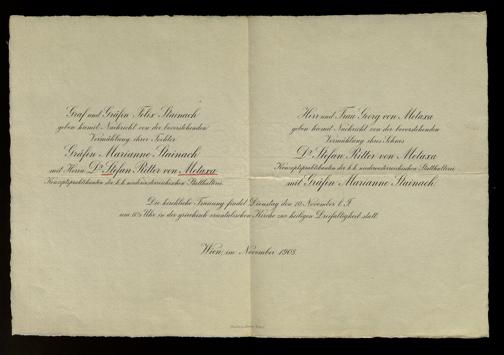 Graf und Gräfin Felix Stainach
geben hiemit Nachricht von der bevorstehenden
Vermählung ihrer Tochter
Gräfin Marianne Stainach
mit Herrn Dr. Stefan Ritter von Metaxa
Konzeptspraktikanten der k. k. niederösterreichischen Statthalterei.
Herr und Frau Georg von Metaxa
geben hiemit Nachricht von der bevorstehenden
Vermählung ihres Sohnes
Dr. Stefan Ritter von Metaxa
Konzeptspraktikanten der k. k. niederösterreichischen Statthalterei
mit Gräfin Marianne Stainach.
Die kirchliche Trauung findet Dienstag den 10. November l. J.
um Uhr in der griechisch orientalischen Kirche zur heiligen Dreifaltigkeit statt.
Wien, im November 1908.